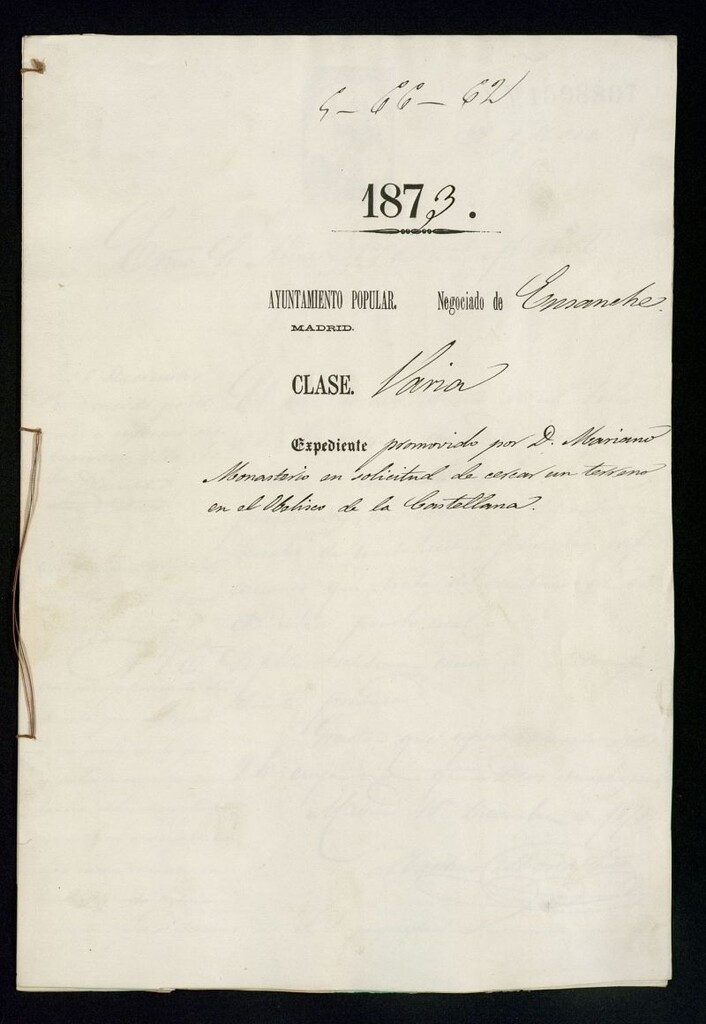 5-66-62
1873.
AYUNTAMIENTO POPULAR. Negociado de Ensanche.
MADRID.
CLASE. Varia
Expediente promovido por D. Mariano
Monasterio en solicitud de cercar un terreno
en el Obelisco de la Castellana.